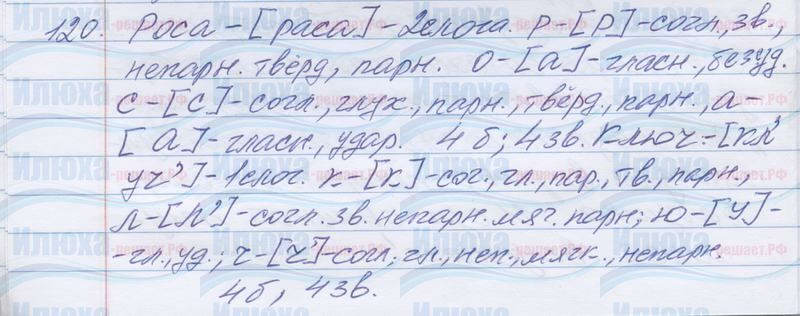 120. Роса - [раса] - 2слога. Р - [Р] - согл., зв.,
непарн. твёрд, парн. О - [а] - гласн., безуд.
с - [с] - согл., глух., парн., твёрд., парн., а -
[а] - гласн., удар. 4 б; 4 зв. Ключ - [кл'
уч'] - 1слог. к - [к] - сог., гл., пар., тв., парн.,
л - [л'] - согл. зв. непарн. мяг. парн; ю - [у] -
- гл., уд.; ч - [ч'] - согл., гл., неп., мягк., непарн.
4б, 4зв.